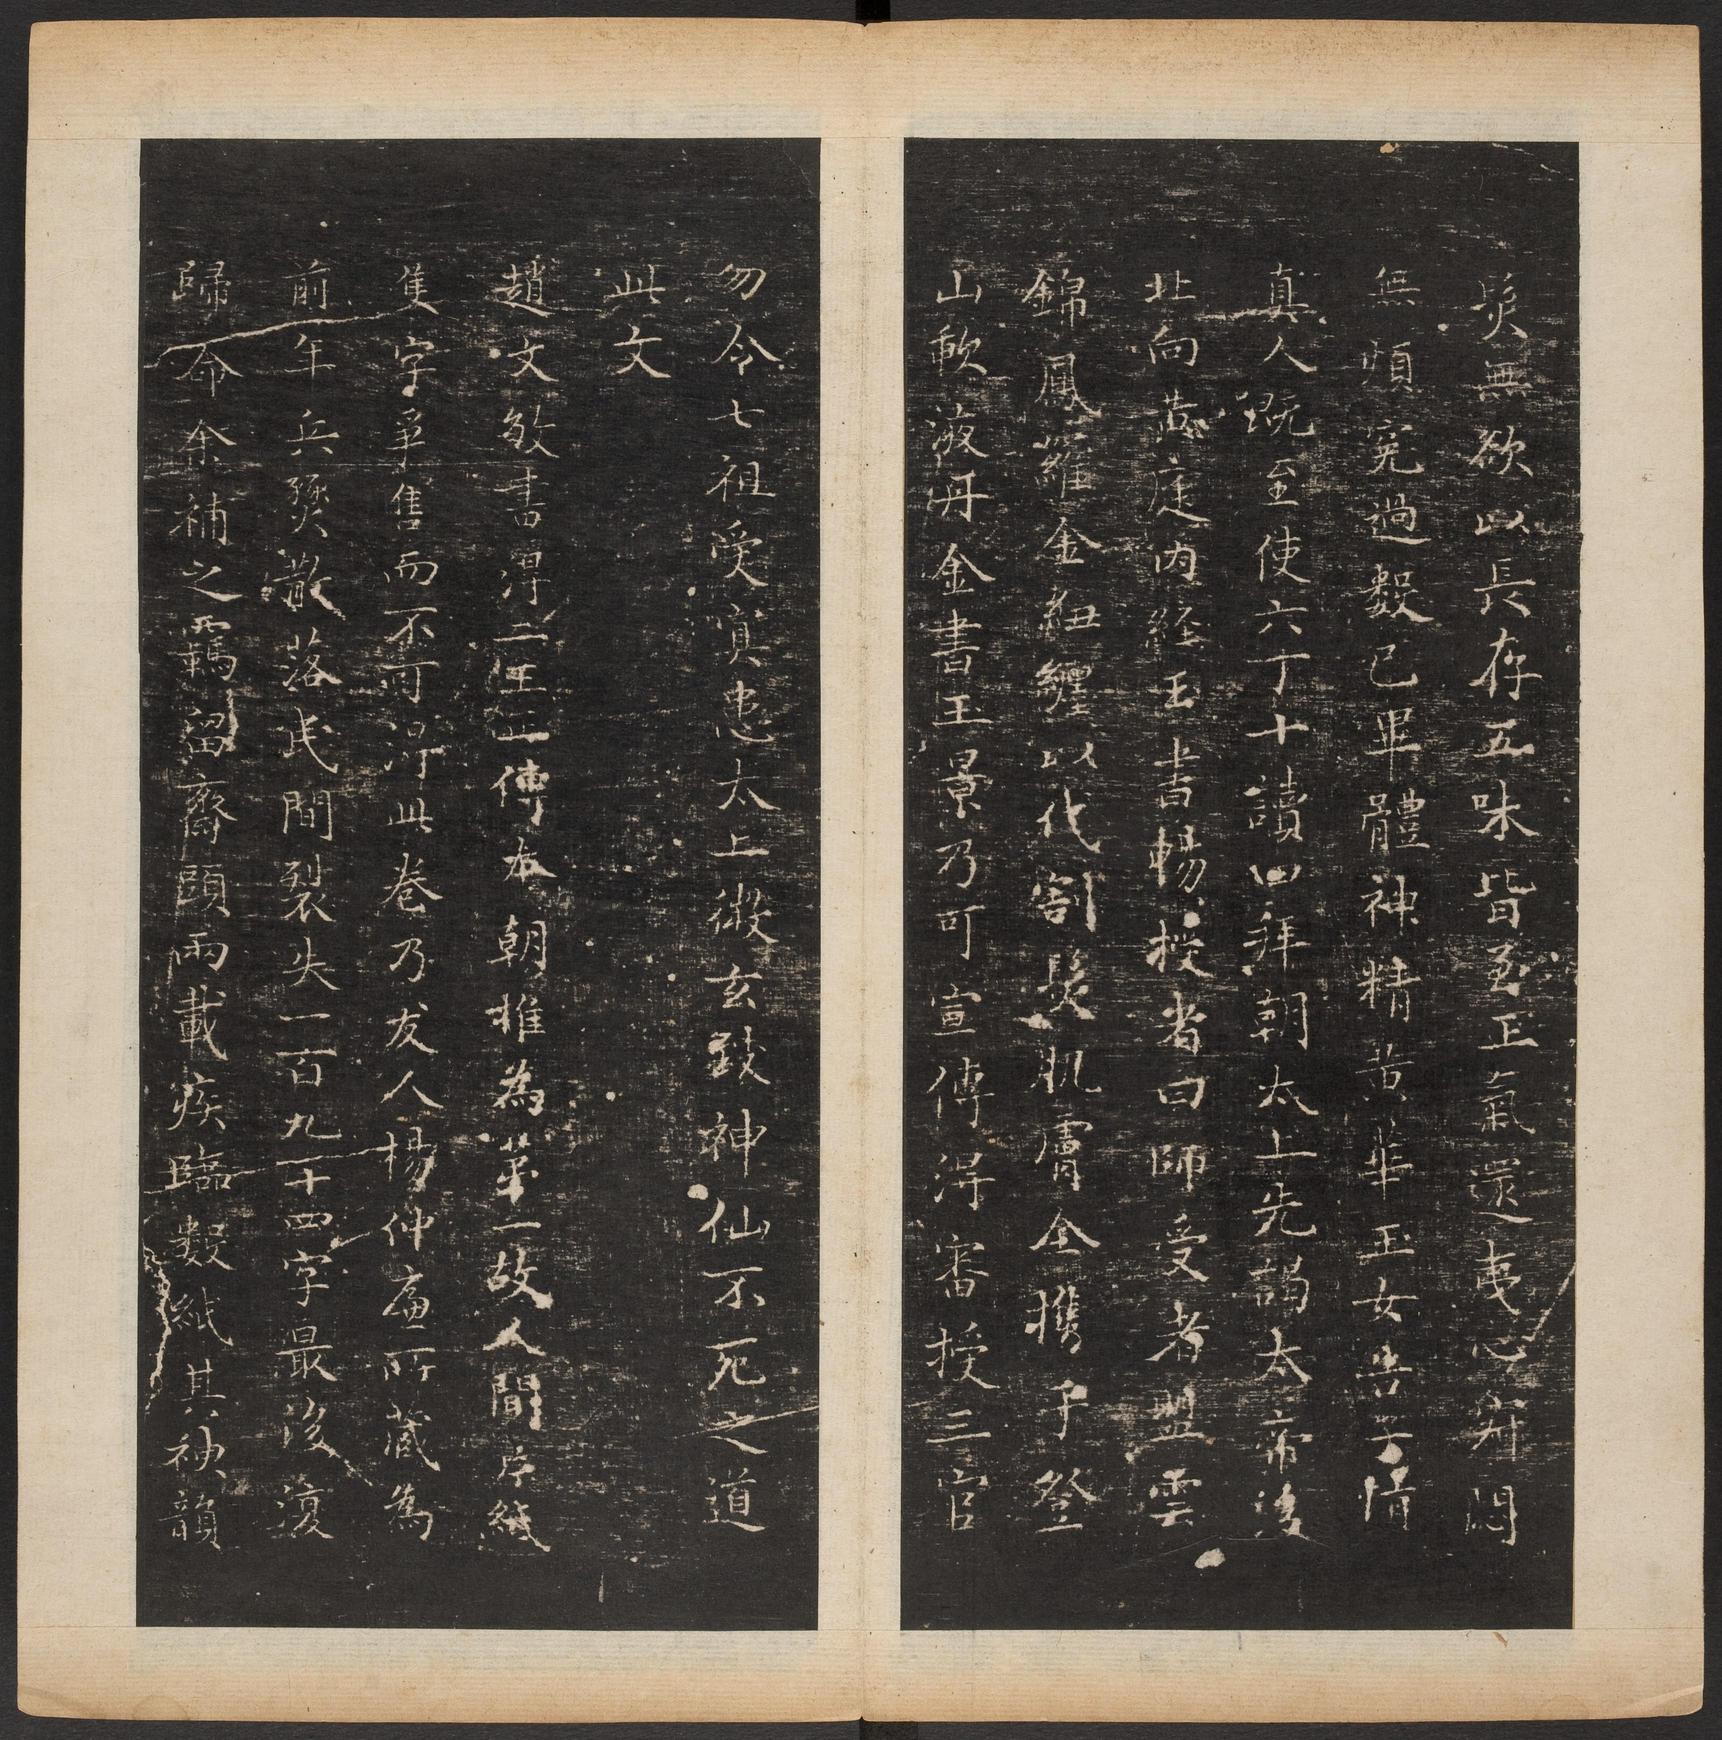 髮無欲以長存五味皆至正氣還夷心窮悶
無煩冤過數已畢體神精黃華玉女告子情
真人既至使六丁十讀四拜朝太上先謁太帝後
北向黃庭內經玉書暢授者曰師受者盟雲
錦鳳羅金紐纏以代割髮肌膚全攜手登
山歃液丹金書玉景乃可宣傳得審授三官
勿令七祖受冥患太上微玄致神仙不死之道
此文
趙文敏書得二王正傳本朝推為第一故人間片紙
隻字爭售而不可得此卷乃友人楊仲廉所藏為
前年兵燹散落民間裂失一百九十四字最後復
歸命余補之羈留齋頭兩載疾臨數紙其神韻